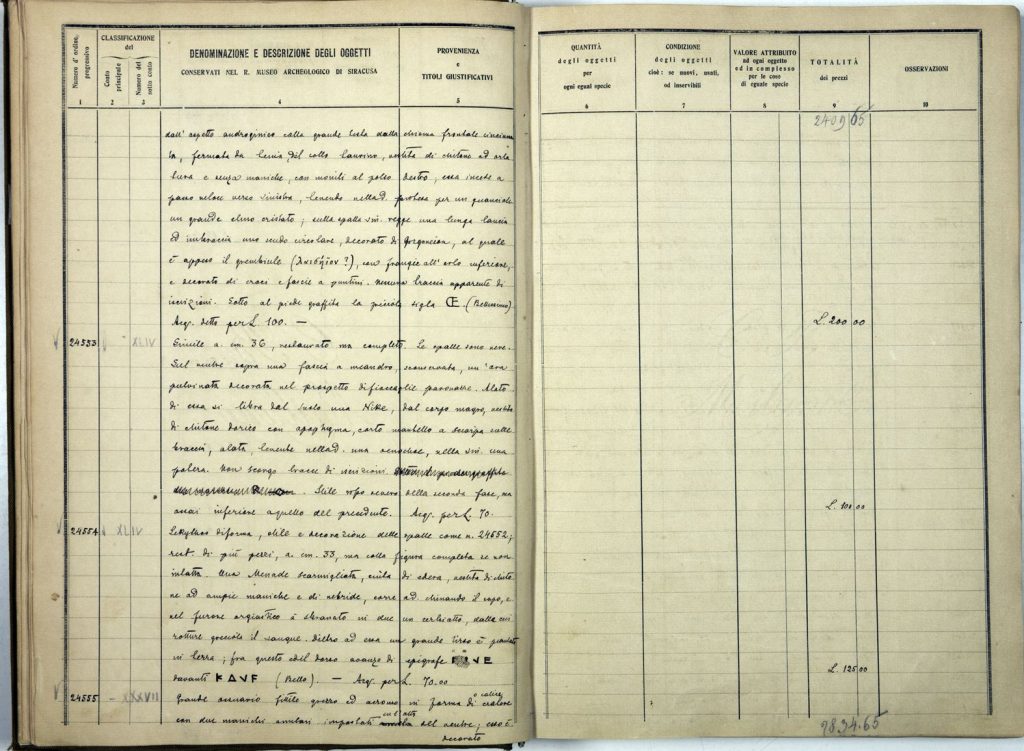 Numero d'ordine progressivo
CLASSIFICAZIONE
del
Conto principale
Numero del sotto conto
DENOMINAZIONE E DESCRIZIONE DEGLI OGGETTI
CONSERVATI NEL R. MUSEO ARCHEOLOGICO DI SIRACUSA
PROVENIENZA
e
TITOLI GIUSTIFICATIVI
1 2 3 4 5
dall'aspetto androginico colla grande testa dalla chioma frontale
ta, fermata da tenia del collo taurino, vestita di chitone ad orla
tura e senza maniche, con moniti al polso destro; essa incede a
passo veloce verso sinistra, tenendo nella d. protesa per un guanciale
un grande elmo cristato; sulla spalla sin. regge una lunga lancia
ed imbraccia uno scudo circolare, decorato di gorgoneion, al quale
è appeso il grembiule ( ?), con frangie all'orlo inferiore,
e decorato di croci e fascie a puntini. Nessuna traccia apparente di
iscrizioni. Sotto al piede graffita la piccola sigla Œ. (Bellissimo)
Acq. detto per L. 100. —
24553 XLIV Simile a. cm. 36, restaurato ma completo. Le spalle sono nere.
Sul ventre sopra una fascia a meandro, sconservata, un'ara
pulvinata decorata nel prospetto di
di essa si libra dal suolo una Nike, dal corpo magro, vestita
di chitone dorico con apoptygma, corto mantello a sciarpa sulle
braccia, alata, tenente nella d. una oenochoe, nella sin. una
patera. Non scorgo tracce di iscrizioni.
Stile rosso severo della seconda fase, ma
assai inferiore a quello del precedente. Acq. per L. 70.
24554 XLIV Lekythos di forma, stile e decorazione delle spalle come n. 24552;
rest. di più pezzi, a. cm. 33, ma colla figura completa se non
intatta. Una Menade scarmigliata, cinta di edera, vestita di chito
ne ad ampie maniche e di nebride, corre ad chinando il capo, e
nel furore orgiastico à sbranato in due un cerbiatto, dalle cui
rotture gocciola il sangue. Dietro ad essa un grande tirso è piantato
in terra; fra questo e del dorso avanzo di epigrafe
davanti (Bello). — Acq. per L. 70.00
24555 XXXVII Grande fittile grezzo ed acromo in forma di cratere
o calice
con due maniche anulari impostati del ventre; esso è
decorato
QUANTITÀ
degli oggetti
per
ogni egual specie
CONDIZIONE
degli oggetti
cioè: se nuovi, usati,
od inservibili
VALORE ATTRIBUITO
ad ogni oggetto
ed in complesso
per le cose
di eguale specie
TOTALITÀ
dei prezzi
OSSERVAZIONI
6 7 8 9 10
2409 65
L. 200 00
L. 100 00
L. 125.00
2834.65